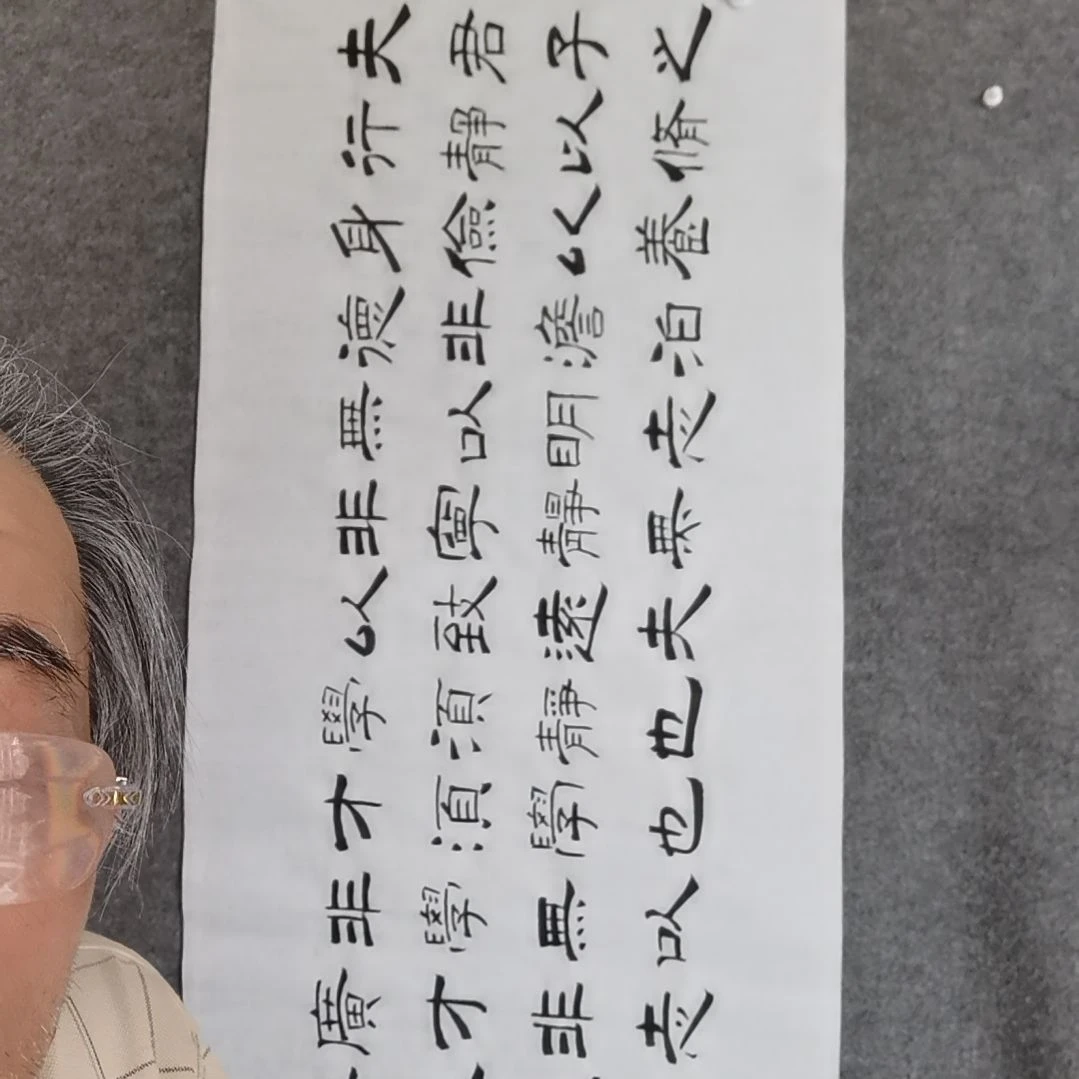 夫君子之
行靜以脩
身儉以養
德非澹泊
無以明志
非寧靜無
以致遠夫
學須靜也
才須學也
非學無以
廣才非志